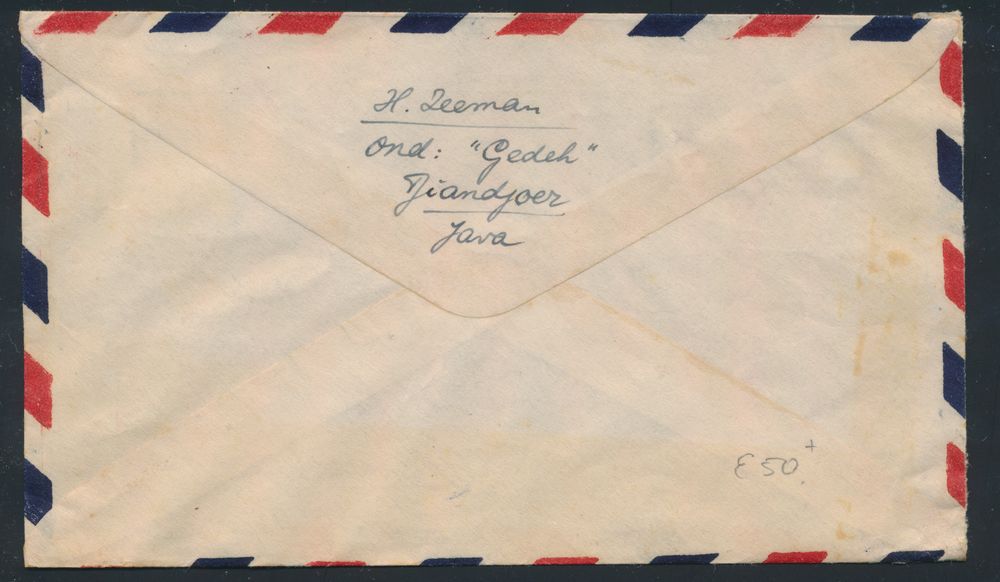 H. Zeeman
Ond: "Gedeh"
Tjiandjoer
Java
£50+